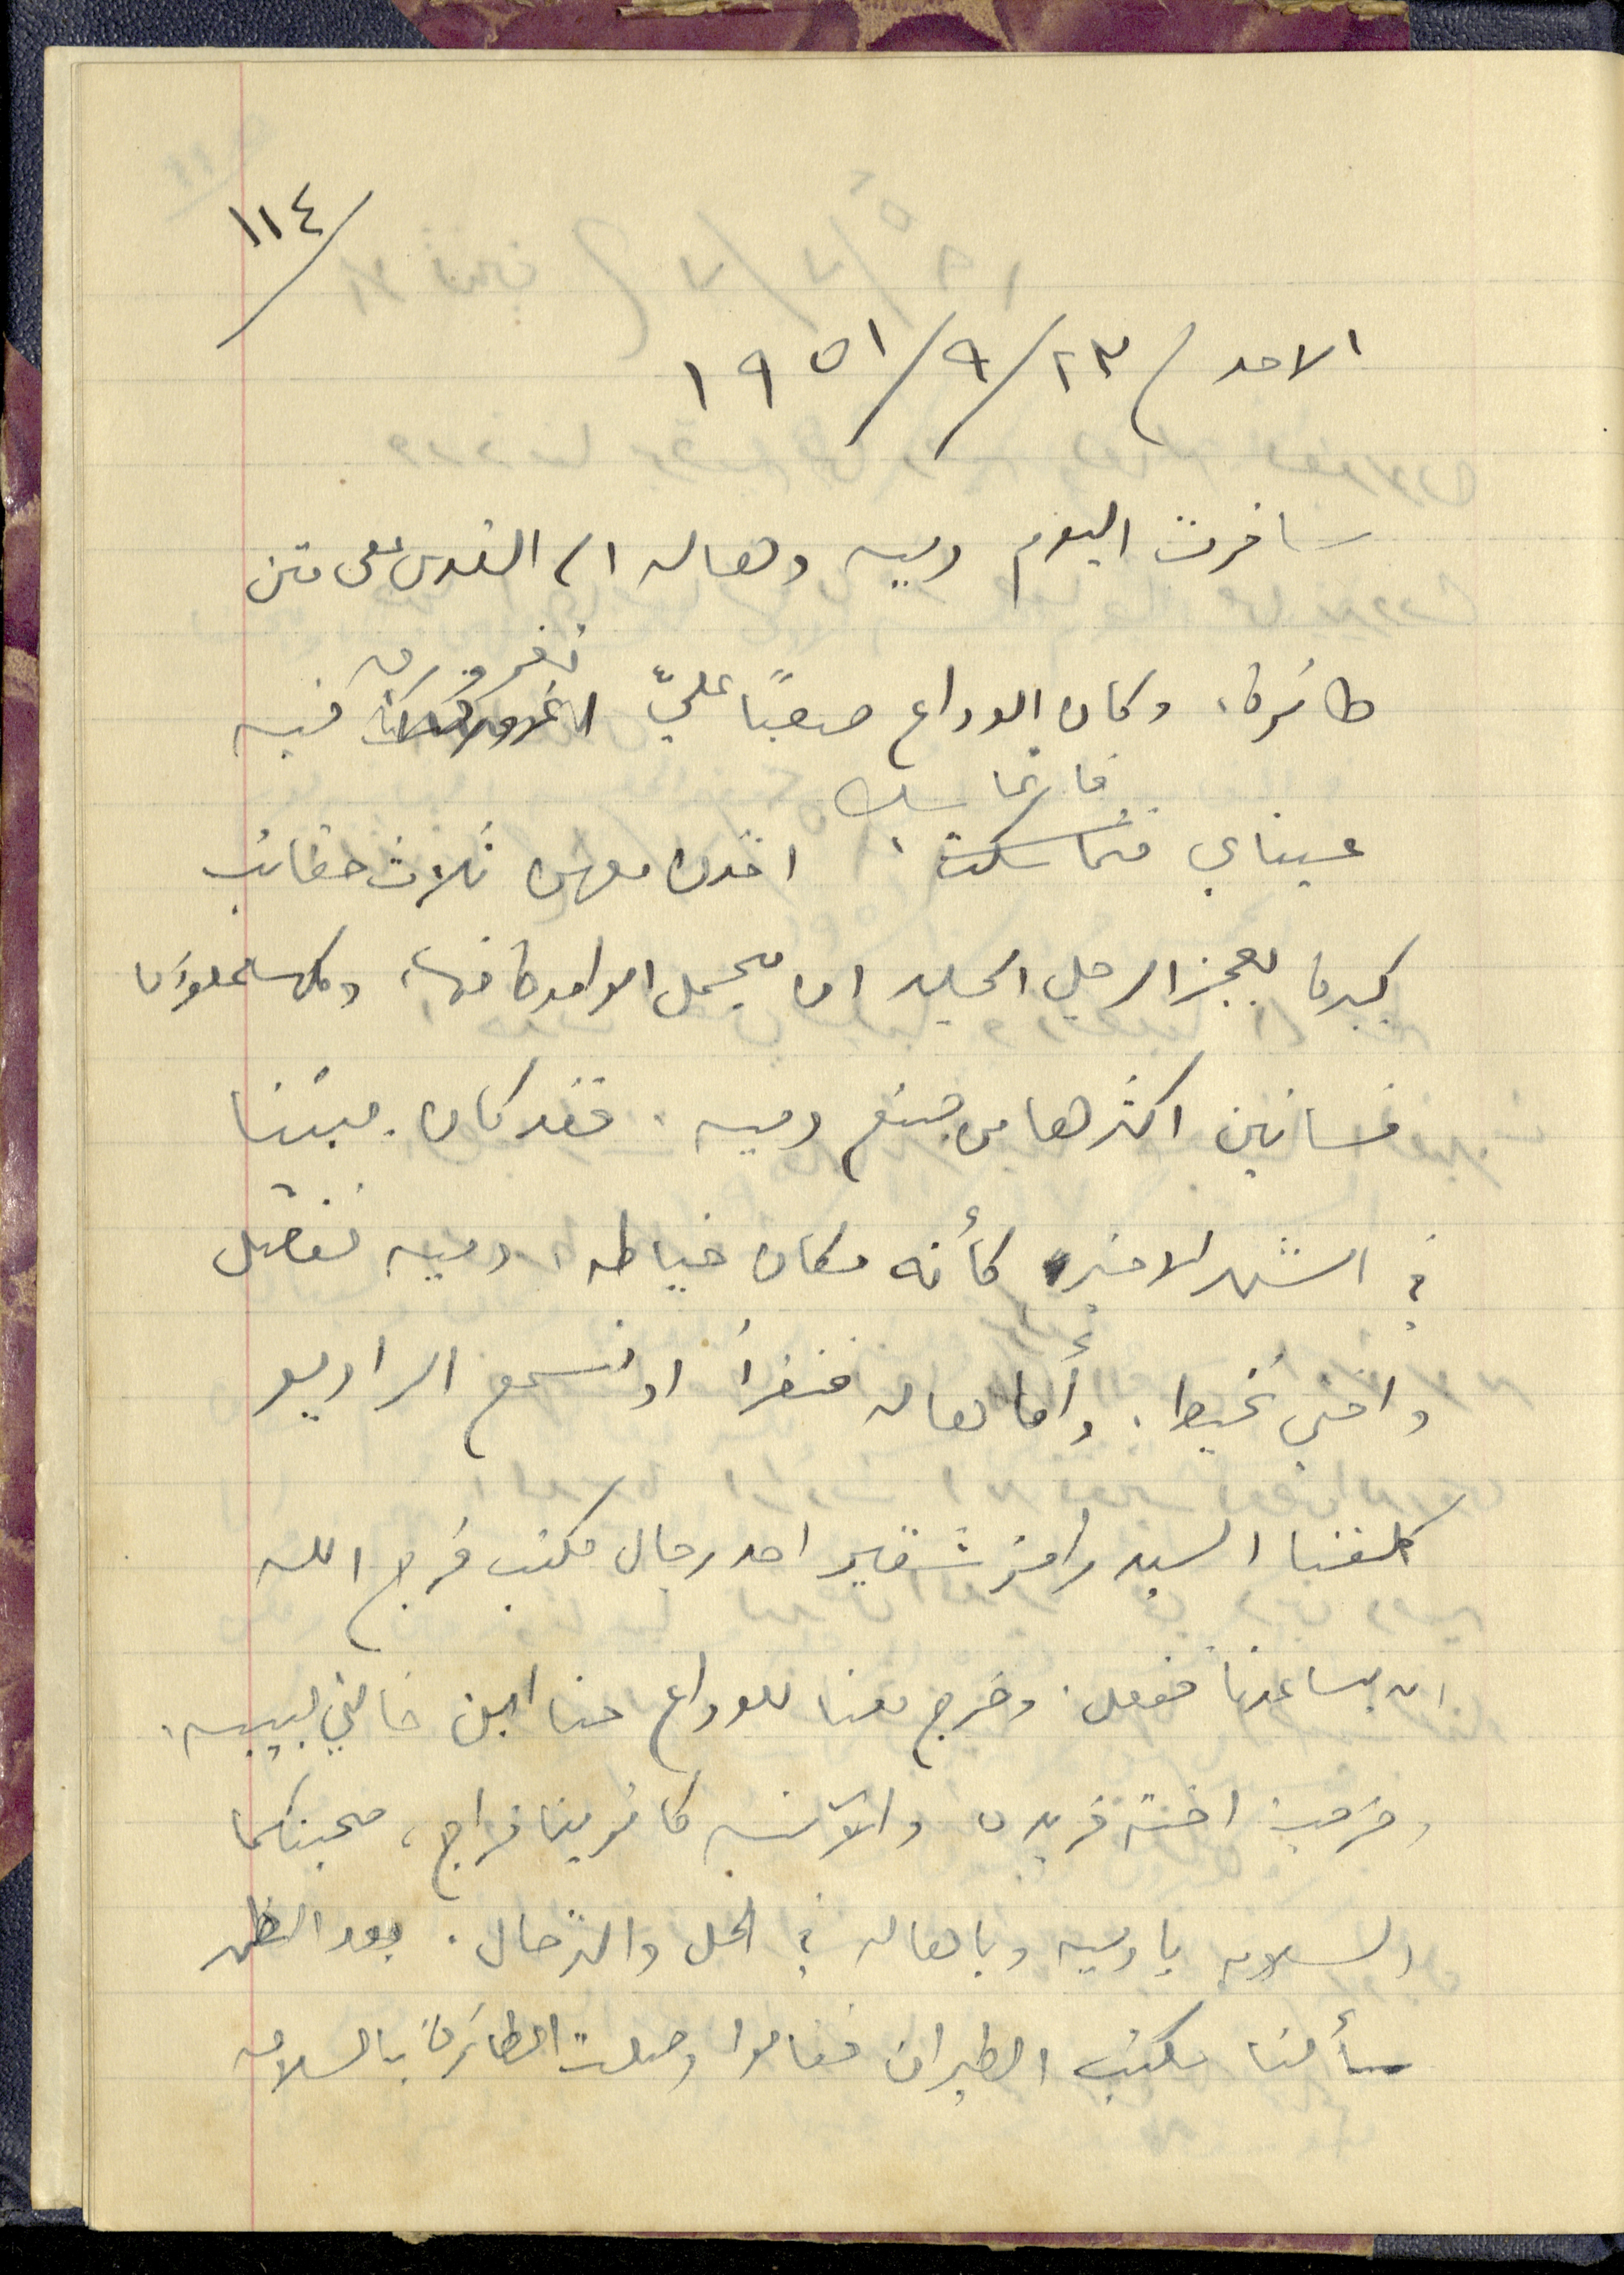 ١١٤/
الاحد / ٢٣/٩/١٩٥١
سافرت اليوم دميه وهاله الى القدس على متن
طائرة، وكان الوداع صعبًا عليّ تغرورق فيه
عيناي فاتماسك، اخذن معهن ثلاث حقائب
كبيرة يعجز الرجل الجليد ان يحمل الواحدة منها، وكلها مملوءة
فساتين اكثرها من صنع دميه. فقد كان بيتنا
في الشهر الاخير كأنه مكان خياطه، دميه تفصل
واختي تخيط. وأما هاله فتقرأ او تسمع الراديو
كلفنا السيد رامز شقير احد رجال مكتب فرج الله
ان يساعدنا ففعل. وخرج معنا للوداع حنا ابن خالتي لبيبه،
وخرجت اخته فريدة والآنسه كاترينا فراج، صحبتكما
السلامه يا دميه ويا هاله في الحل والترحال. بعد الظهر
سألنا مكتب الطيران فقالوا وصلت الطائرة بالسلامه